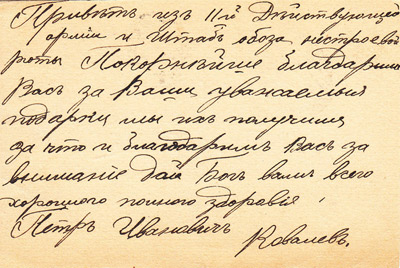 Привѣтъ изъ 11-й Дѣйствующей
арміи и Штаб обоза нестроевой
роты Покорнѣйше благодарим
Васъ за Ваши уважаемыя
подарки мы их получили
за что и благодаримъ Васъ за
вниманіе дай Богъ вамъ всего
хорошего полного здоровія,
Петръ Ивановичъ
Ковалевъ.